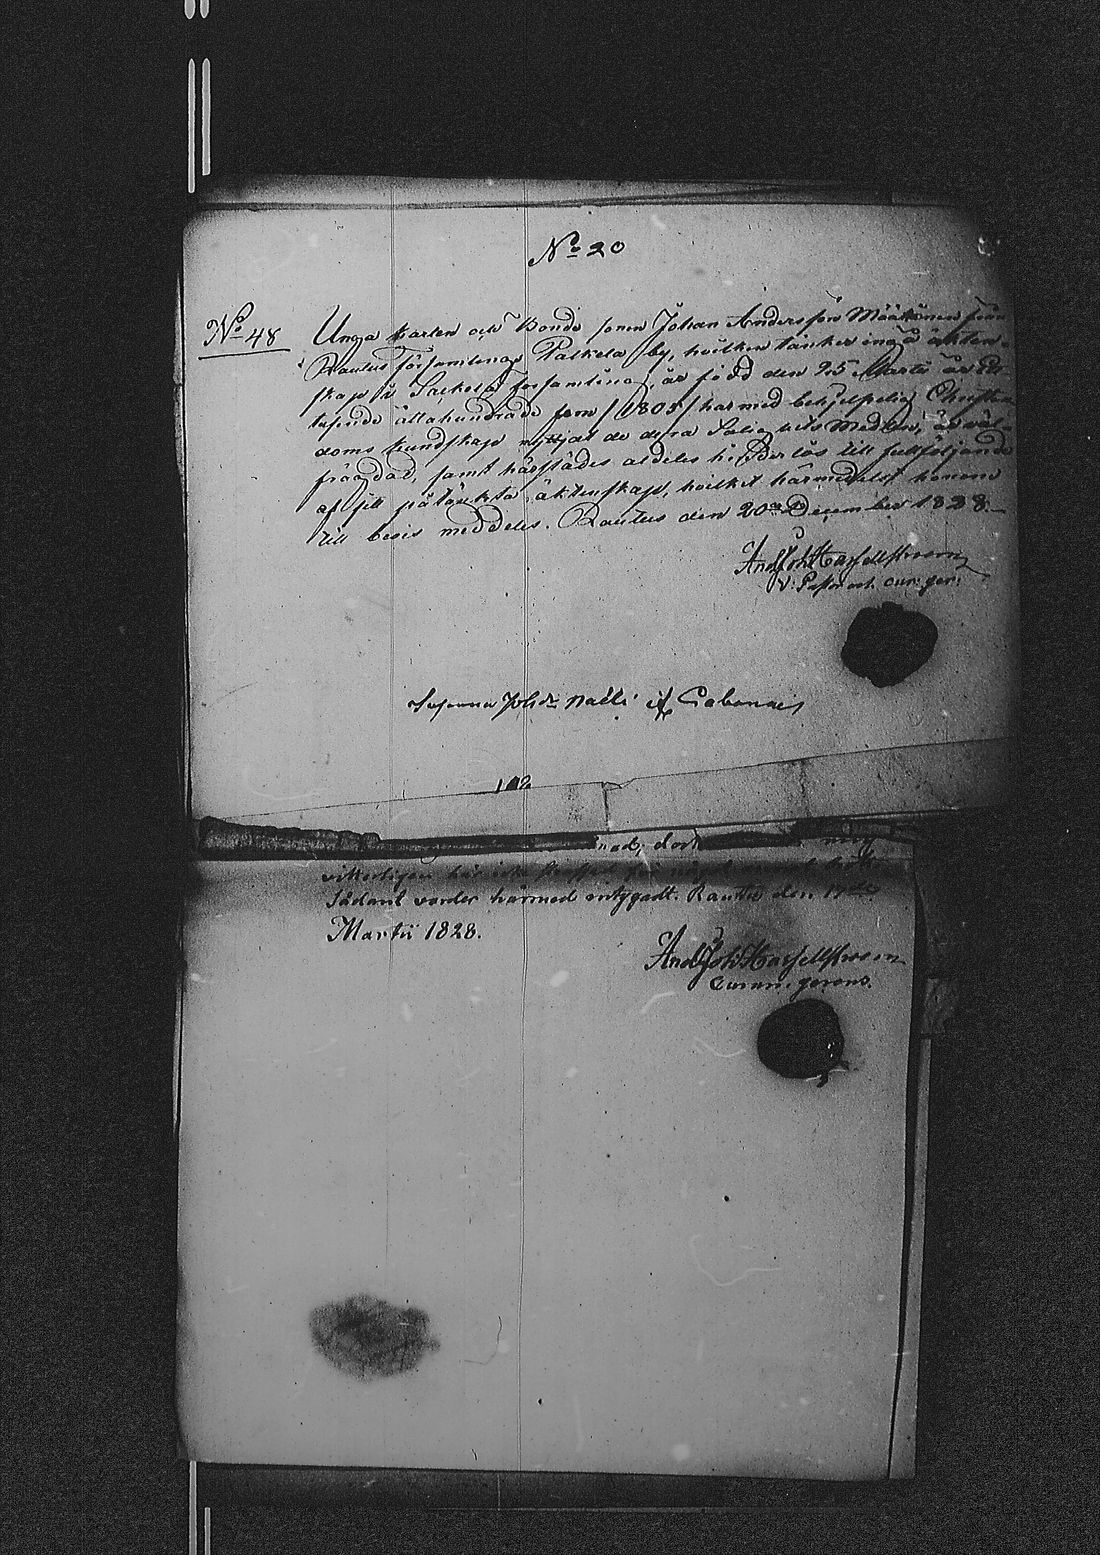 No 20
No 48
Unga karlen och Bonde sonen Johan Andersson Määttänen från
Rautus Församlings Palkela by, hvilken tänker ingå äkten-
skap i Sackola församling, är född den 25 Martii år Ett
tusende åttahundrade fem /1805/ har med behjelpelig Christen-
doms kundskap nyttjat de dyra Salighets Medlen, är väl-
frägdad, samt härstädes aldeles hinderlös till fullföljande
af sitt påtänkta äktenskap, hvilket härmedelst honom
till bevis meddeles. Rautus den 20de December 1828.
And Joh Hasselström
V: Pastor och cur: ger:
Susanna Johsdr Nalli if
102
nad, dock
vitterligen här icke straffad för något
Sådant varder härmed intygadt. Rautus den 17de
Martii 1828.
And Joh Hasselström
Curam gerens.